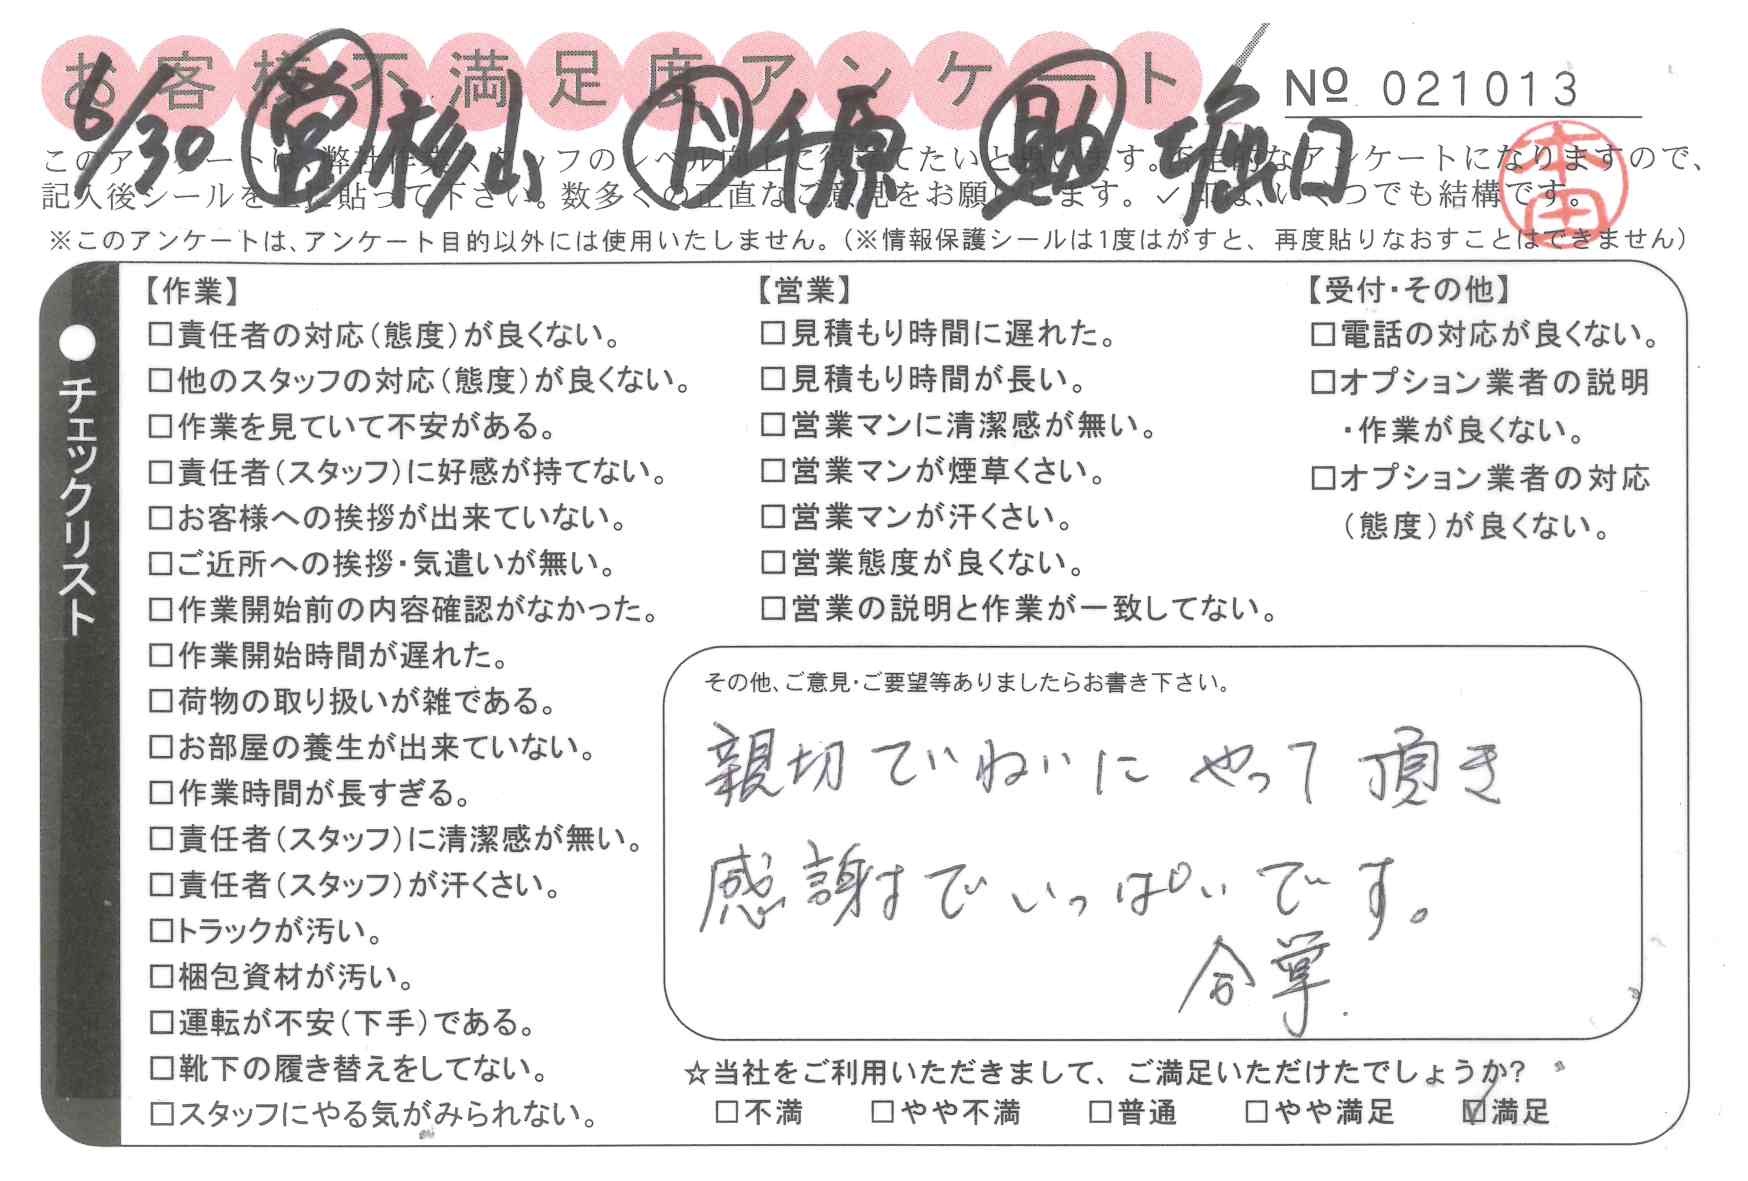 お客様不満足度アンケート
No 021013
6/30 営 杉山 ド 千原 助 堀口
本田
このアンケートは、弊社作業スタッフのレベル向上に役立てたいと思います。不定期なアンケートになりますので、
記入後シールを上に貼って下さい。数多くの正直なご意見をお願いします。✓印は、いくつでも結構です。
※このアンケートは、アンケート目的以外には使用いたしません。(※情報保護シールは1度はがすと、再度貼りなおすことはできません)
●チェックリスト
【作業】
□責任者の対応(態度)が良くない。
□他のスタッフの対応(態度)が良くない。
□作業を見ていて不安がある。
□責任者(スタッフ)に好感が持てない。
□お客様への挨拶が出来ていない。
□ご近所への挨拶・気遣いが無い。
□作業開始前の内容確認がなかった。
□作業開始時間が遅れた。
□荷物の取り扱いが雑である。
□お部屋の養生が出来ていない。
□作業時間が長すぎる。
□責任者(スタッフ)に清潔感が無い。
□責任者(スタッフ)が汗くさい。
□トラックが汚い。
□梱包資材が汚い。
□運転が不安(下手)である。
□靴下の履き替えをしてない。
□スタッフにやる気がみられない。
【営業】
□見積もり時間に遅れた。
□見積もり時間が長い。
□営業マンに清潔感が無い。
□営業マンが煙草くさい。
□営業マンが汗くさい。
□営業態度が良くない。
□営業の説明と作業が一致してない。
【受付・その他】
□電話の対応が良くない。
□オプション業者の説明
・作業が良くない。
□オプション業者の対応
(態度)が良くない。
その他、ご意見・ご要望等ありましたらお書き下さい。
親切ていねいにやって頂き
感謝でいっぱいです。
合掌.
☆当社をご利用いただきまして、ご満足いただけたでしょうか?
□不満 □やや不満 □普通 □やや満足 ☑満足